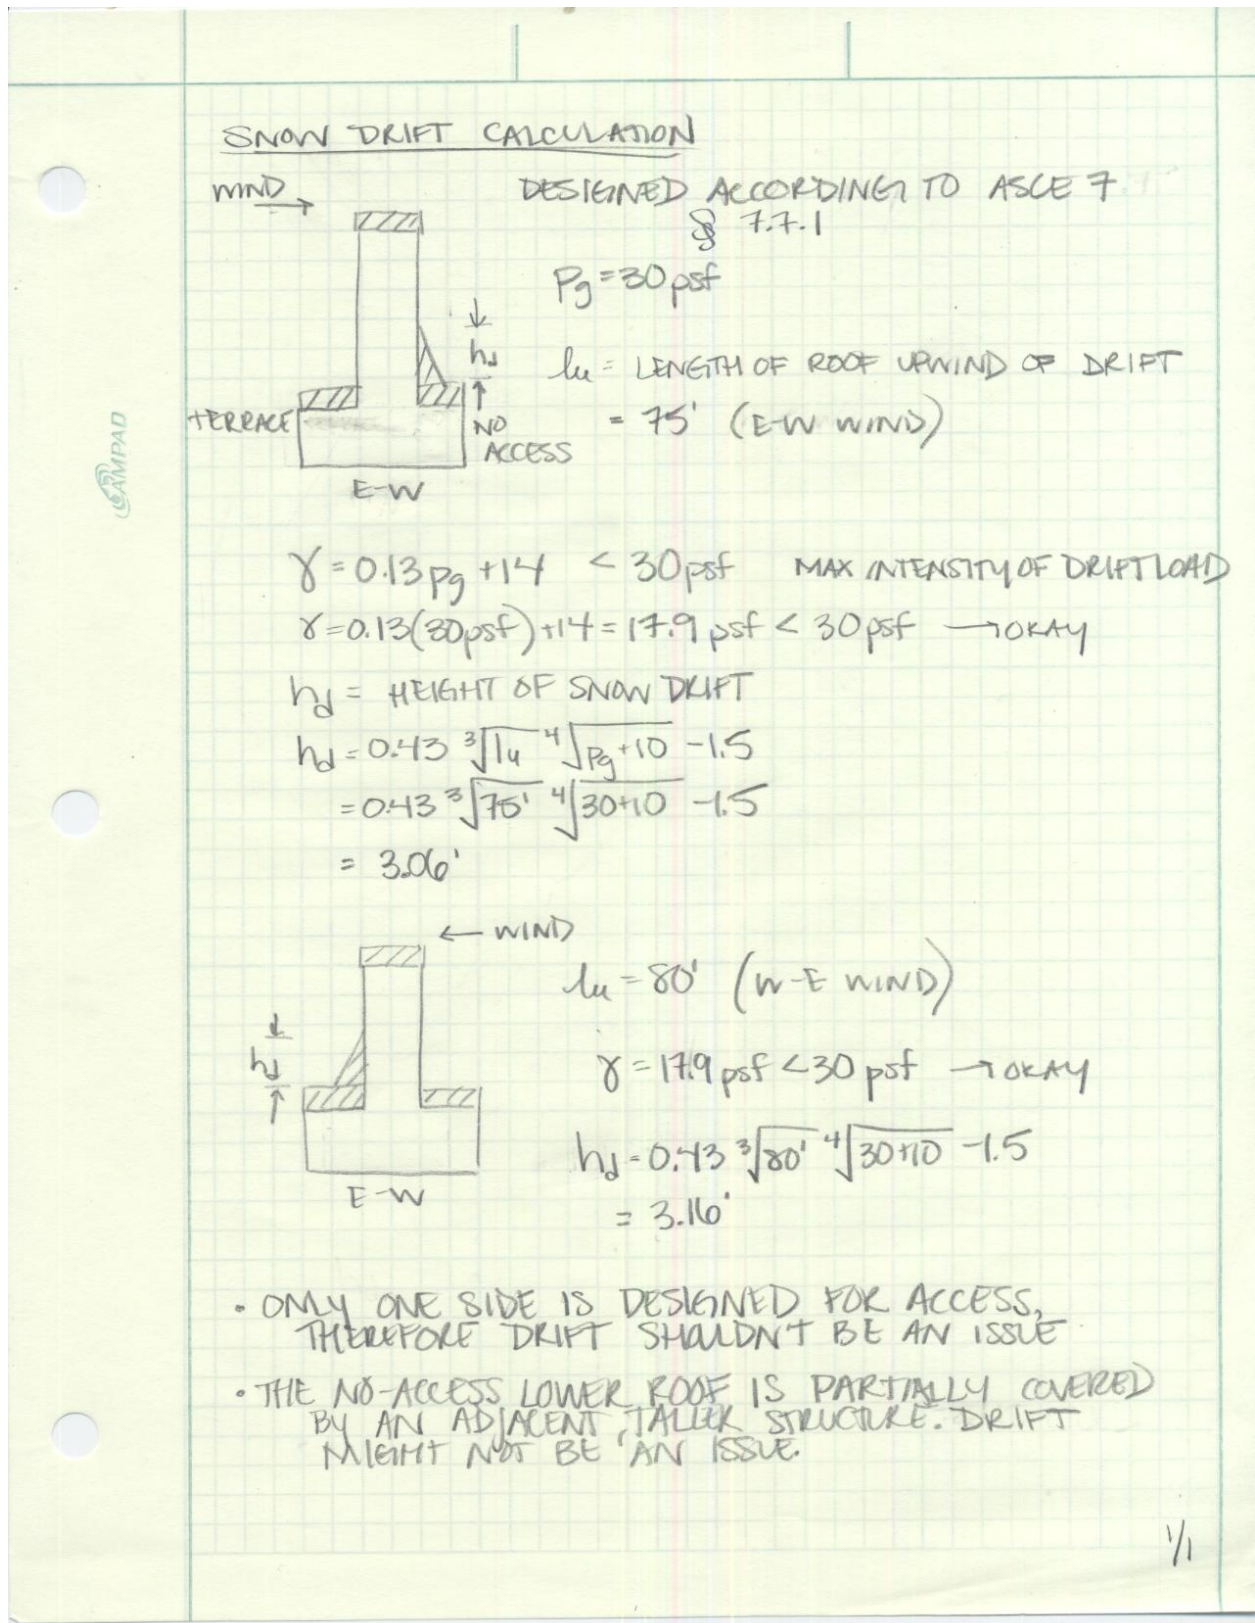 SNOW DRIFT CALCULATION
WIND →
DESIGNED ACCORDING TO ASCE 7
§ 7.7.1
Pg = 30 psf
hd
lu = LENGTH OF ROOF UPWIND OF DRIFT
= 75' (E-W WIND)
TERRACE
NO
ACCESS
E-W
AMPAD
γ = 0.13 pg + 14 < 30 psf MAX INTENSITY OF DRIFT LOAD
γ = 0.13(30psf) + 14 = 17.9 psf < 30 psf → OKAY
hd = HEIGHT OF SNOW DRIFT
hd = 0.43 ∛lu ∜pg+10 - 1.5
= 0.43 ∛75' ∜30+10 - 1.5
= 3.06'
← WIND
lu = 80' (W-E WIND)
hd
γ = 17.9 psf < 30 psf → OKAY
hd = 0.43 ∛80' ∜30+10 - 1.5
= 3.16'
E-W
• ONLY ONE SIDE IS DESIGNED FOR ACCESS,
THEREFORE DRIFT SHOULDN'T BE AN ISSUE
• THE NO-ACCESS LOWER ROOF IS PARTIALLY COVERED
BY AN ADJACENT, TALLER STRUCTURE. DRIFT
MIGHT NOT BE AN ISSUE.
1/1